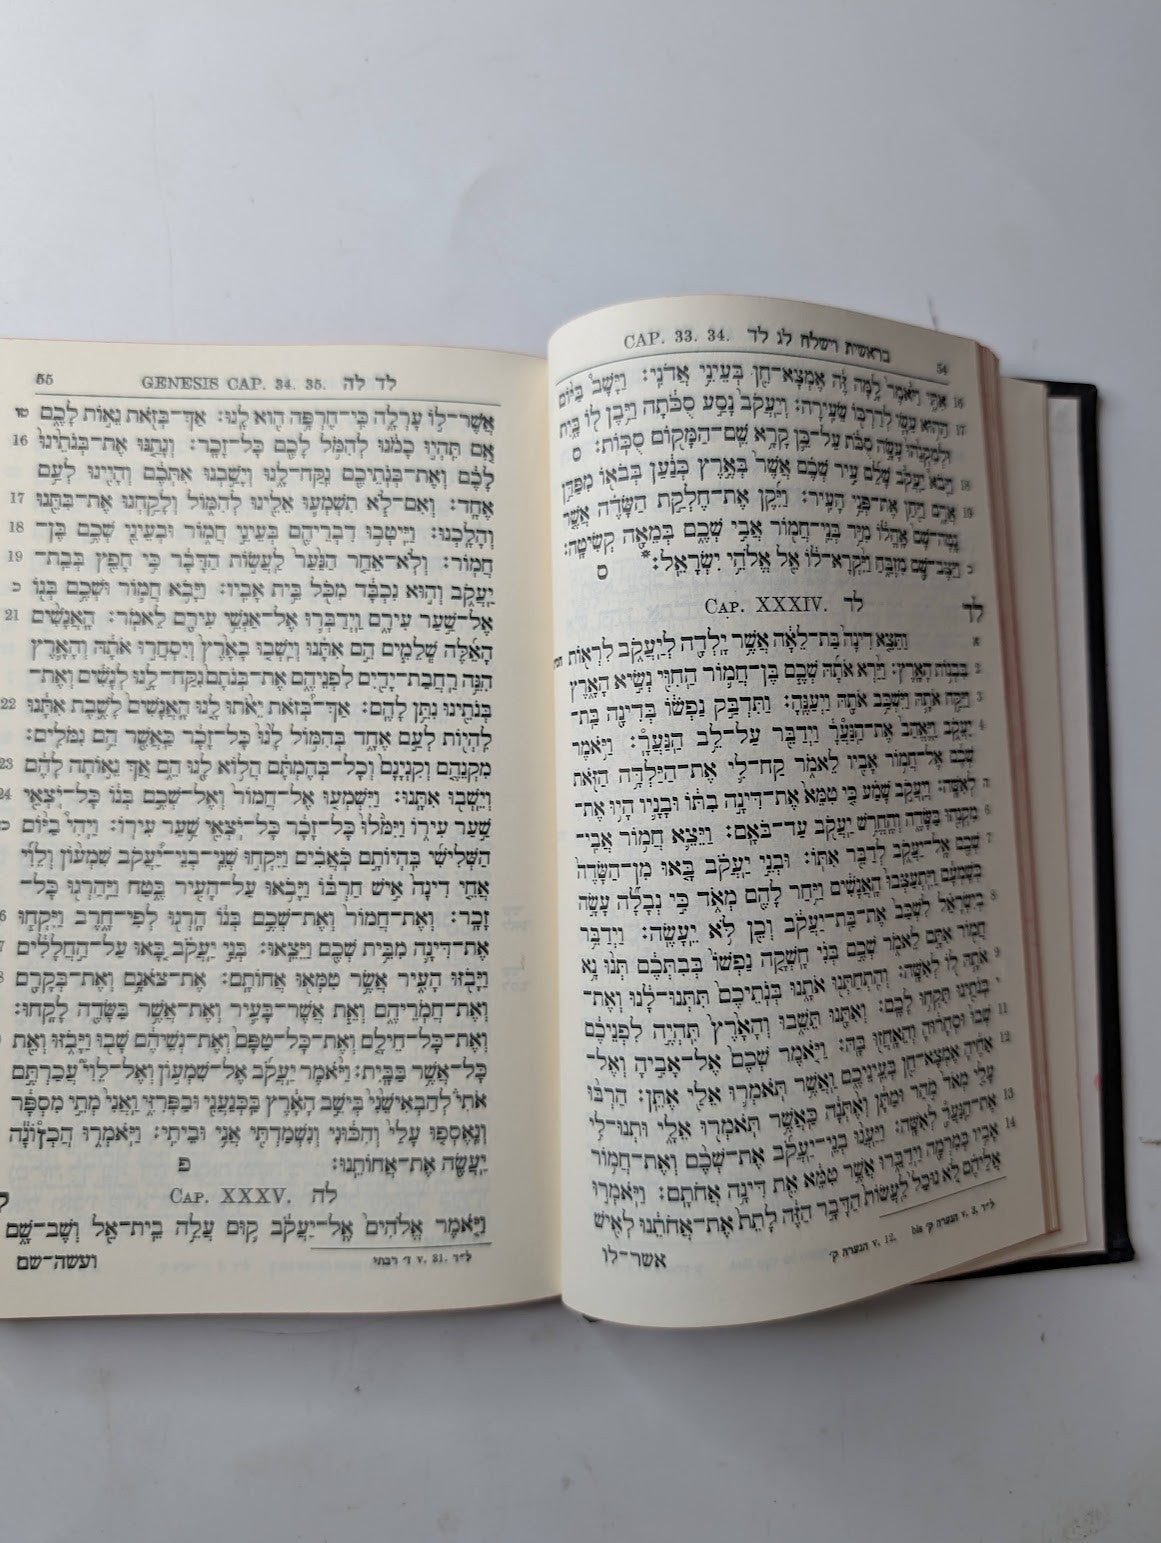 54 בראשית וישלח לג לד CAP. 33. 34.
16 אֵלָי וַיֹּאמֶר לָמָּה זֶּה אֶמְצָא־חֵן בְּעֵינֵי אֲדֹנִי׃ וַיָּשָׁב בַּיּוֹם
17 הַהוּא עֵשָׂו לְדַרְכּוֹ שֵׂעִירָה׃ וְיַעֲקֹב נָסַע סֻכֹּתָה וַיִּבֶן לוֹ בַּיִת
וּלְמִקְנֵהוּ עָשָׂה סֻכֹּת עַל־כֵּן קָרָא שֵׁם־הַמָּקוֹם סֻכּוֹת׃ ס
18 וַיָּבֹא יַעֲקֹב שָׁלֵם עִיר שְׁכֶם אֲשֶׁר בְּאֶרֶץ כְּנַעַן בְּבֹאוֹ מִפַּדַּן
19 אֲרָם וַיִּחַן אֶת־פְּנֵי הָעִיר׃ וַיִּקֶן אֶת־חֶלְקַת הַשָּׂדֶה אֲשֶׁר
נָטָה־שָׁם אָהֳלוֹ מִיַּד בְּנֵי־חֲמוֹר אֲבִי שְׁכֶם בְּמֵאָה קְשִׂיטָה׃
כ וַיַּצֶּב־שָׁם מִזְבֵּחַ וַיִּקְרָא־לוֹ אֵל אֱלֹהֵי יִשְׂרָאֵל׃* ס
לד לד CAP. XXXIV.
א וַתֵּצֵא דִינָה בַּת־לֵאָה אֲשֶׁר יָלְדָה לְיַעֲקֹב לִרְאוֹת
2 בִּבְנוֹת הָאָרֶץ׃ וַיַּרְא אֹתָהּ שְׁכֶם בֶּן־חֲמוֹר הַחִוִּי נְשִׂיא הָאָרֶץ
3 וַיִּקַּח אֹתָהּ וַיִּשְׁכַּב אֹתָהּ וַיְעַנֶּהָ׃ וַתִּדְבַּק נַפְשׁוֹ בְּדִינָה בַּת־
4 יַעֲקֹב וַיֶּאֱהַב אֶת־הַנַּעֲרָ וַיְדַבֵּר עַל־לֵב הַנַּעֲרָ׃ וַיֹּאמֶר
שְׁכֶם אֶל־חֲמוֹר אָבִיו לֵאמֹר קַח־לִי אֶת־הַיַּלְדָּה הַזֹּאת
ה לְאִשָּׁה׃ וְיַעֲקֹב שָׁמַע כִּי טִמֵּא אֶת־דִּינָה בִתּוֹ וּבָנָיו הָיוּ אֶת־
6 מִקְנֵהוּ בַּשָּׂדֶה וְהֶחֱרִשׁ יַעֲקֹב עַד־בֹּאָם׃ וַיֵּצֵא חֲמוֹר אֲבִי־
7 שְׁכֶם אֶל־יַעֲקֹב לְדַבֵּר אִתּוֹ׃ וּבְנֵי יַעֲקֹב בָּאוּ מִן־הַשָּׂדֶה
כְּשָׁמְעָם וַיִּתְעַצְּבוּ הָאֲנָשִׁים וַיִּחַר לָהֶם מְאֹד כִּי נְבָלָה עָשָׂה
8 בְיִשְׂרָאֵל לִשְׁכַּב אֶת־בַּת־יַעֲקֹב וְכֵן לֹא יֵעָשֶׂה׃ וַיְדַבֵּר
חֲמוֹר אִתָּם לֵאמֹר שְׁכֶם בְּנִי חָשְׁקָה נַפְשׁוֹ בְּבִתְּכֶם תְּנוּ נָא
9 אֹתָהּ לוֹ לְאִשָּׁה׃ וְהִתְחַתְּנוּ אֹתָנוּ בְּנֹתֵיכֶם תִּתְּנוּ־לָנוּ וְאֶת־
י בְּנֹתֵינוּ תִּקְחוּ לָכֶם׃ וְאִתָּנוּ תֵּשֵׁבוּ וְהָאָרֶץ תִּהְיֶה לִפְנֵיכֶם
11 שְׁבוּ וּסְחָרוּהָ וְהֵאָחֲזוּ בָּהּ׃ וַיֹּאמֶר שְׁכֶם אֶל־אָבִיהָ וְאֶל־
12 אַחֶיהָ אֶמְצָא־חֵן בְּעֵינֵיכֶם וַאֲשֶׁר תֹּאמְרוּ אֵלַי אֶתֵּן׃ הַרְבּוּ
עָלַי מְאֹד מֹהַר וּמַתָּן וְאֶתְּנָה כַּאֲשֶׁר תֹּאמְרוּ אֵלָי וּתְנוּ־לִי
13 אֶת־הַנַּעֲרָ לְאִשָּׁה׃ וַיַּעֲנוּ בְנֵי־יַעֲקֹב אֶת־שְׁכֶם וְאֶת־חֲמוֹר
14 אָבִיו בְּמִרְמָה וַיְדַבֵּרוּ אֲשֶׁר טִמֵּא אֵת דִּינָה אֲחֹתָם׃ וַיֹּאמְרוּ
אֲלֵיהֶם לֹא נוּכַל לַעֲשׂוֹת הַדָּבָר הַזֶּה לָתֵת אֶת־אֲחֹתֵנוּ לְאִישׁ
ל״ד v. 3. הנערה ק׳ bis v. 12. הנערה ק׳
אשר־לו
55 GENESIS CAP. 34. 35. לד לה
טו אֲשֶׁר־לוֹ עָרְלָה כִּי־חֶרְפָּה הִוא לָנוּ׃ אַךְ־בְּזֹאת נֵאוֹת לָכֶם
16 אִם תִּהְיוּ כָמֹנוּ לְהִמֹּל לָכֶם כָּל־זָכָר׃ וְנָתַנּוּ אֶת־בְּנֹתֵינוּ
לָכֶם וְאֶת־בְּנֹתֵיכֶם נִקַּח־לָנוּ וְיָשַׁבְנוּ אִתְּכֶם וְהָיִינוּ לְעַם
17 אֶחָד׃ וְאִם־לֹא תִשְׁמְעוּ אֵלֵינוּ לְהִמּוֹל וְלָקַחְנוּ אֶת־בִּתֵּנוּ
18 וְהָלָכְנוּ׃ וַיִּיטְבוּ דִבְרֵיהֶם בְּעֵינֵי חֲמוֹר וּבְעֵינֵי שְׁכֶם בֶּן־
19 חֲמוֹר׃ וְלֹא־אֵחַר הַנַּעַר לַעֲשׂוֹת הַדָּבָר כִּי חָפֵץ בְּבַת־
כ יַעֲקֹב וְהוּא נִכְבָּד מִכֹּל בֵּית אָבִיו׃ וַיָּבֹא חֲמוֹר וּשְׁכֶם בְּנוֹ
21 אֶל־שַׁעַר עִירָם וַיְדַבְּרוּ אֶל־אַנְשֵׁי עִירָם לֵאמֹר׃ הָאֲנָשִׁים
הָאֵלֶּה שְׁלֵמִים הֵם אִתָּנוּ וְיֵשְׁבוּ בָאָרֶץ וְיִסְחֲרוּ אֹתָהּ וְהָאָרֶץ
הִנֵּה רַחֲבַת־יָדַיִם לִפְנֵיהֶם אֶת־בְּנֹתָם נִקַּח־לָנוּ לְנָשִׁים וְאֶת־
22 בְּנֹתֵינוּ נִתֵּן לָהֶם׃ אַךְ־בְּזֹאת יֵאֹתוּ לָנוּ הָאֲנָשִׁים לָשֶׁבֶת אִתָּנוּ
לִהְיוֹת לְעַם אֶחָד בְּהִמּוֹל לָנוּ כָּל־זָכָר כַּאֲשֶׁר הֵם נִמֹּלִים׃
23 מִקְנֵהֶם וְקִנְיָנָם וְכָל־בְּהֶמְתָּם הֲלוֹא לָנוּ הֵם אַךְ נֵאוֹתָה לָהֶם
24 וְיֵשְׁבוּ אִתָּנוּ׃ וַיִּשְׁמְעוּ אֶל־חֲמוֹר וְאֶל־שְׁכֶם בְּנוֹ כָּל־יֹצְאֵי
שַׁעַר עִירוֹ וַיִּמֹּלוּ כָּל־זָכָר כָּל־יֹצְאֵי שַׁעַר עִירוֹ׃ וַיְהִי בַיּוֹם
הַשְּׁלִישִׁי בִּהְיוֹתָם כֹּאֲבִים וַיִּקְחוּ שְׁנֵי־בְנֵי־יַעֲקֹב שִׁמְעוֹן וְלֵוִי
אֲחֵי דִינָה אִישׁ חַרְבּוֹ וַיָּבֹאוּ עַל־הָעִיר בֶּטַח וַיַּהַרְגוּ כָּל־
זָכָר׃ וְאֶת־חֲמוֹר וְאֶת־שְׁכֶם בְּנוֹ הָרְגוּ לְפִי־חָרֶב וַיִּקְחוּ
אֶת־דִּינָה מִבֵּית שְׁכֶם וַיֵּצֵאוּ׃ בְּנֵי יַעֲקֹב בָּאוּ עַל־הַחֲלָלִים
וַיָּבֹזּוּ הָעִיר אֲשֶׁר טִמְּאוּ אֲחוֹתָם׃ אֶת־צֹאנָם וְאֶת־בְּקָרָם
וְאֶת־חֲמֹרֵיהֶם וְאֵת אֲשֶׁר־בָּעִיר וְאֶת־אֲשֶׁר בַּשָּׂדֶה לָקָחוּ׃
וְאֶת־כָּל־חֵילָם וְאֶת־כָּל־טַפָּם וְאֶת־נְשֵׁיהֶם שָׁבוּ וַיָּבֹזּוּ וְאֵת
כָּל־אֲשֶׁר בַּבָּיִת׃ וַיֹּאמֶר יַעֲקֹב אֶל־שִׁמְעוֹן וְאֶל־לֵוִי עֲכַרְתֶּם
אֹתִי לְהַבְאִישֵׁנִי בְּיֹשֵׁב הָאָרֶץ בַּכְּנַעֲנִי וּבַפְּרִזִּי וַאֲנִי מְתֵי מִסְפָּר
וְנֶאֶסְפוּ עָלַי וְהִכּוּנִי וְנִשְׁמַדְתִּי אֲנִי וּבֵיתִי׃ וַיֹּאמְרוּ הַכְזוֹנָה
יַעֲשֶׂה אֶת־אֲחוֹתֵנוּ׃ פ
לה CAP. XXXV.
וַיֹּאמֶר אֱלֹהִים אֶל־יַעֲקֹב קוּם עֲלֵה בֵית־אֵל וְשֶׁב־שָׁם
ל״ד v. 31. ז׳ רבתי
ועשה־שם